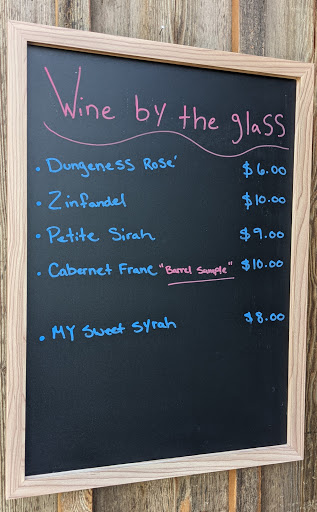 Wine by the glass
• Dungeness Rose' $6.00
• Zinfandel $10.00
• Petite Sirah $9.00
• Cabernet Franc "Barrel Sample" $10.00
• MY Sweet Syrah $8.00